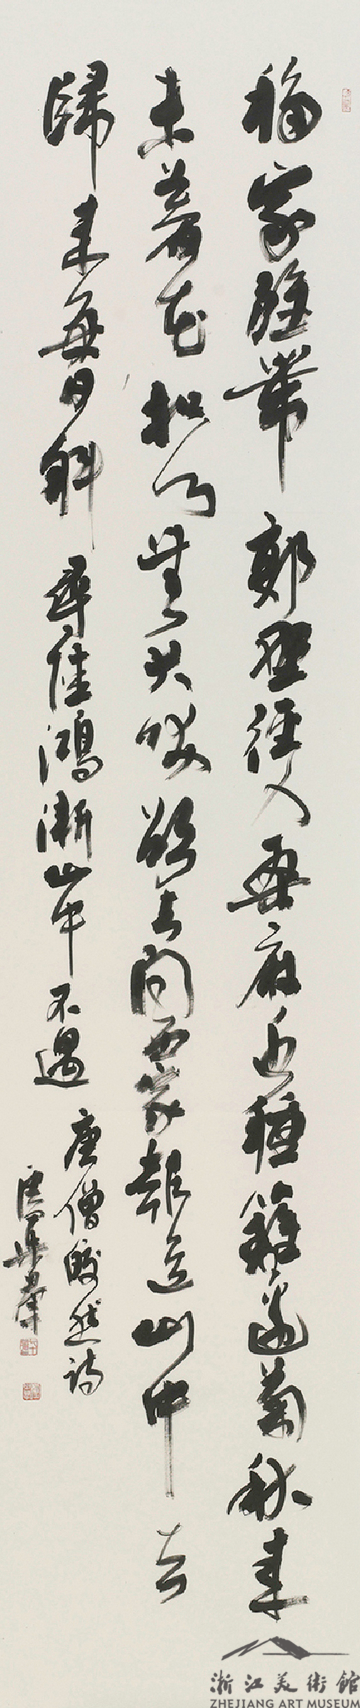 移家雖帶郭野徑入桑麻近種籬邊菊秋來
未著花扣門無犬吠欲去問西家報道山中去
歸來每日斜 尋陸鴻漸山中不遇 唐僧皎然詩
浙江美術館
ZHEJIANG ART MUSEUM